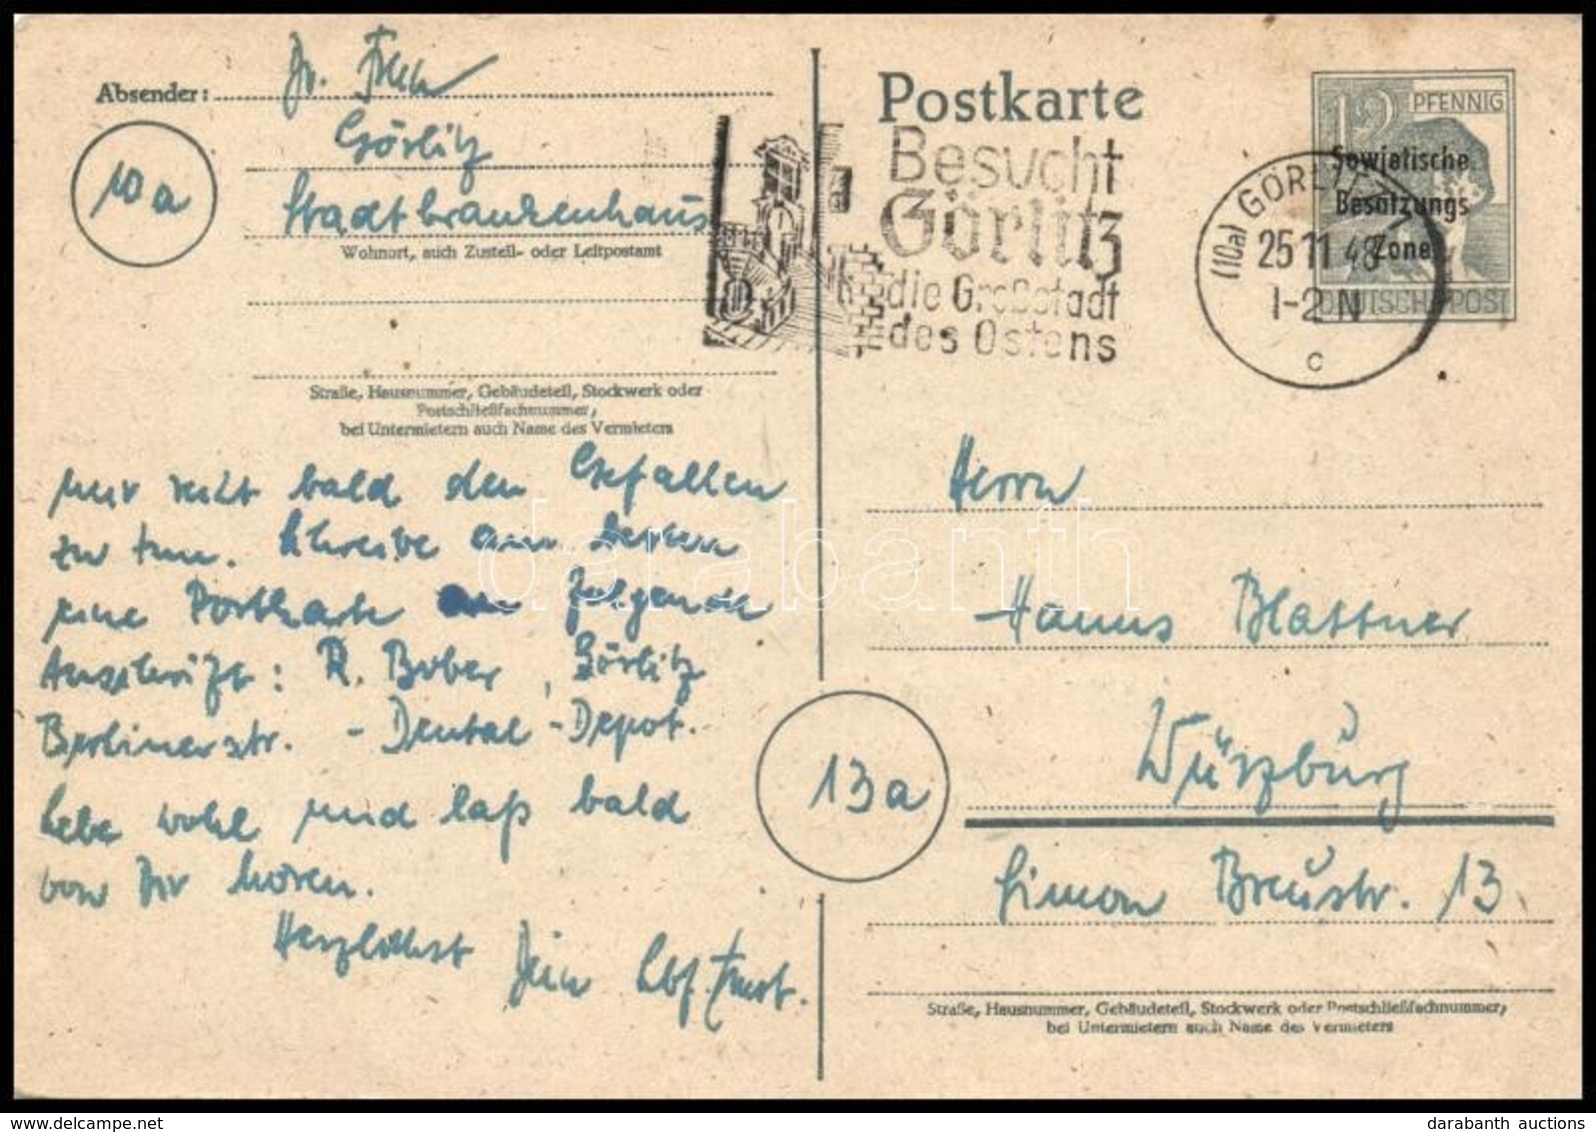 Absender: Dr.
Görlitz
10a
Stadtkrankenhaus
Wohnort, auch Zustell- oder Leitpostamt
Straße, Hausnummer, Gebäudeteil, Stockwerk oder
Postschließfachnummer,
bei Untermietern auch Name des Vermieters
mir recht bald den Gefallen
zu tun. Schreibe am besten
eine Postkarte an folgende
Anschrift: R. Bober, Görlitz
Berlinerstr. - Dental-Depot.
Lebe wohl und laß bald
von Dir hören.
Herzlichst Dein Ernst.
Postkarte
Besucht
Görlitz
die Großstadt
des Ostens
12 PFENNIG
Sowjetische
Besatzungs
Zone
DEUTSCHE POST
(10a) GÖRLITZ
25 11 48
1-2 N
c
Herrn
Hanns Blattner
13a
Würzburg
Simon Breustr. 13
Straße, Hausnummer, Gebäudeteil, Stockwerk oder Postschließfachnummer,
bei Untermietern auch Name des Vermieters
darabanth
darabanth auctions
delcampe.net